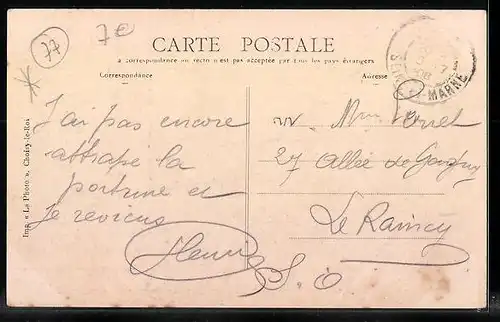 77
7e
CARTE POSTALE
La correspondance au recto n'est pas acceptée par tous les pays étrangers
Correspondance
Adresse
SEINE
MARNE
08
J'ai pas encore
attrapé la
fortune et
je reviens
Henri
M
27 Allée de
Le Raincy
S. O
Imp. « La Photo », Choisy-le-Roi